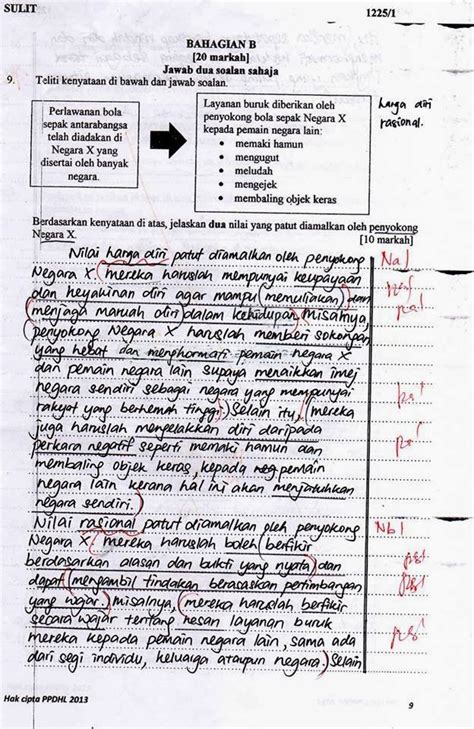 SULIT
1225/1
BAHAGIAN B
[20 markah]
Jawab dua soalan sahaja
9. Teliti kenyataan di bawah dan jawab soalan.
Perlawanan bola
sepak antarabangsa
telah diadakan di
Negara X yang
disertai oleh banyak
negara.
Layanan buruk diberikan oleh
penyokong bola sepak Negara X
kepada pemain negara lain:
• memaki hamun
• mengugut
• meludah
• mengejek
• membaling objek keras
harga diri
rasional.
Berdasarkan kenyataan di atas, jelaskan dua nilai yang patut diamalkan oleh penyokong
Negara X.
[10 markah]
Nilai harga diri patut diamalkan oleh penyokong Na1
Negara X (mereka haruslah mempunyai keupayaan
dan keyakinan diri agar mampu (memuliakan) dan
(menjaga maruah diri) dalam kehidupan. Misalnya,
(penyokong Negara X haruslah memberi sokongan
yang hebat dan menghormati pemain negara X
dan pemain negara lain supaya menaikkan imej
negara sendiri sebagai negara yang mempunyai
rakyat yang berhemah tinggi.) Selain itu, (mereka
juga haruslah mengelakkan diri daripada
perkara negatif seperti memaki hamun dan
membaling objek keras kepada pemain
negara lain kerana hal ini akan menjatuhkan
negara sendiri.)
Nilai rasional patut diamalkan oleh penyokong Nb1
Negara X (mereka haruslah boleh (berfikir
berdasarkan alasan dan bukti yang nyata) dan
dapat (mengambil tindakan berasaskan pertimbangan
yang wajar.) Misalnya, (mereka haruslah berfikir
secara wajar tentang kesan layanan buruk
mereka kepada pemain negara lain, sama ada
dari segi individu, keluarga ataupun negara.) Selain
Hak cipta PPDHL 2013
9